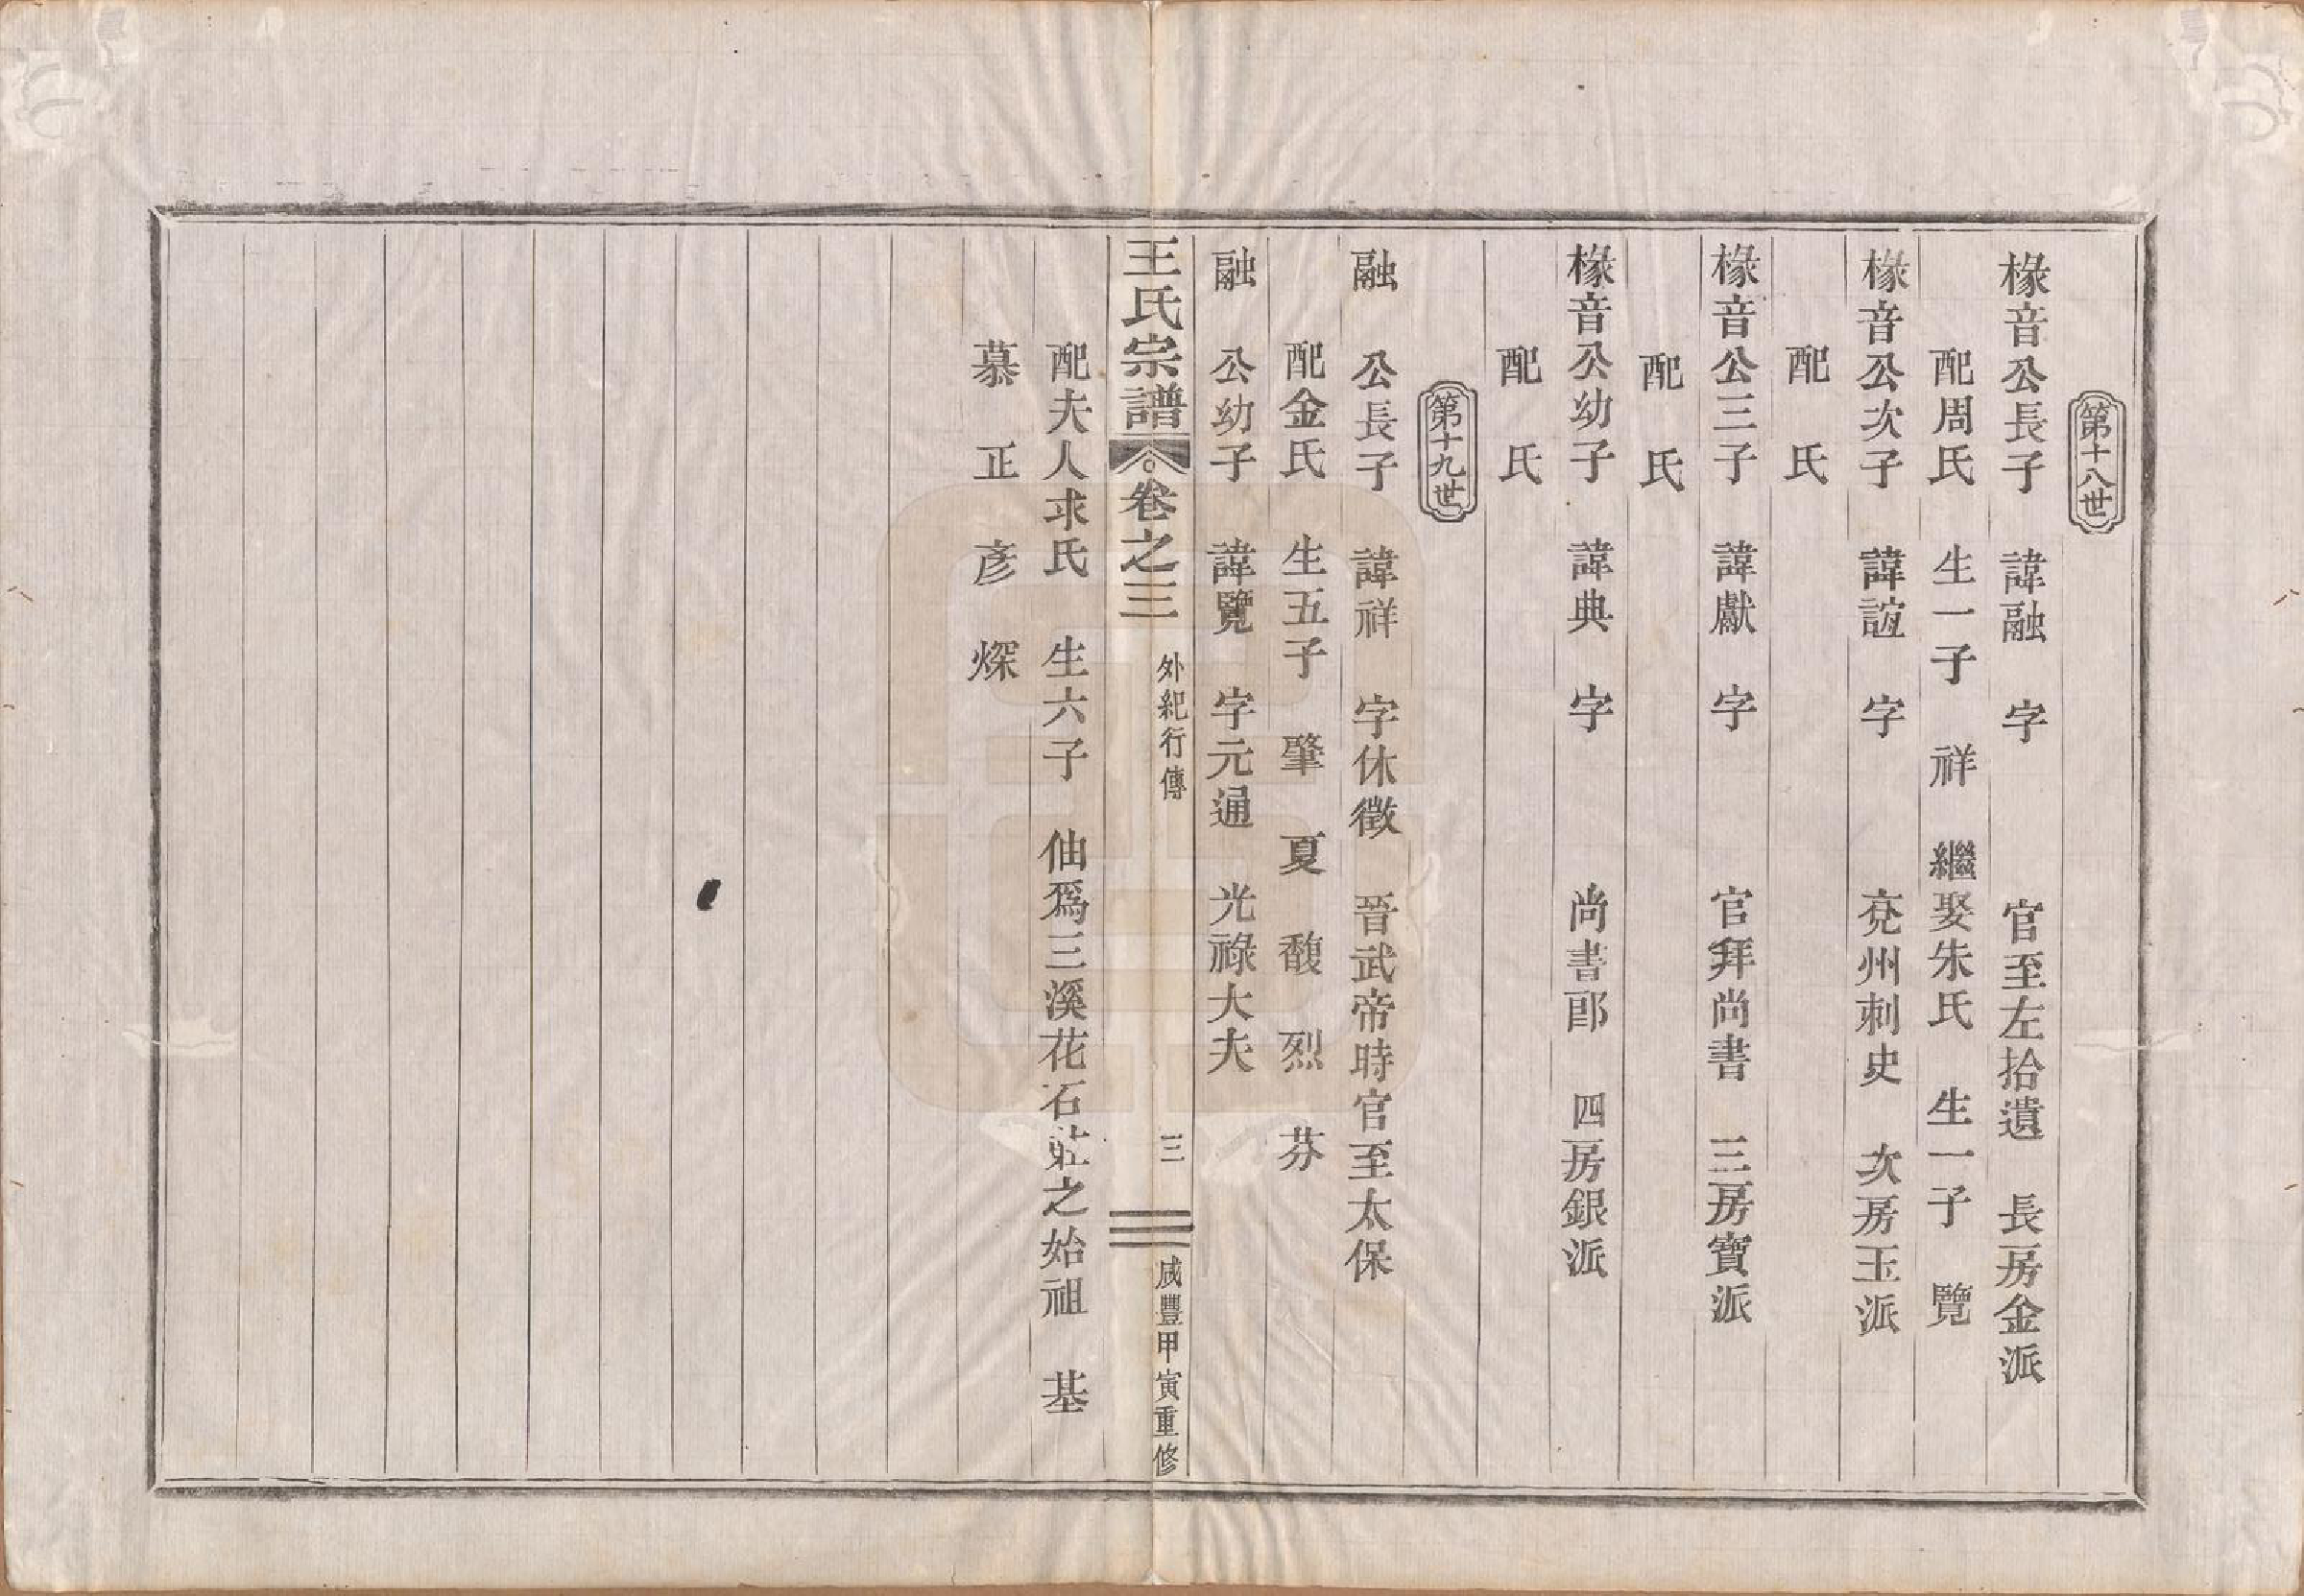 第十八世
椽音公長子 諱融 字 官至左拾遺 長房金派
配周氏 生一子 祥 繼娶朱氏 生一子 覽
椽音公次子 諱誼 字 兗州刺史 次房玉派
配 氏
椽音公三子 諱獻 字 官拜尚書 三房寶派
配 氏
椽音公幼子 諱典 字 尚書郎 四房銀派
配 氏
第十九世
融 公長子 諱祥 字休徵 晉武帝時官至太保
配金氏 生五子 肇 夏 馥 烈 芬
融 公幼子 諱覽 字元通 光祿大夫
王氏宗譜 卷之三 外紀行傳 三 咸豐甲寅重修
配夫人求氏 生六子 仙爲三溪花石莊之始祖 基
慕 正 彥 㷱